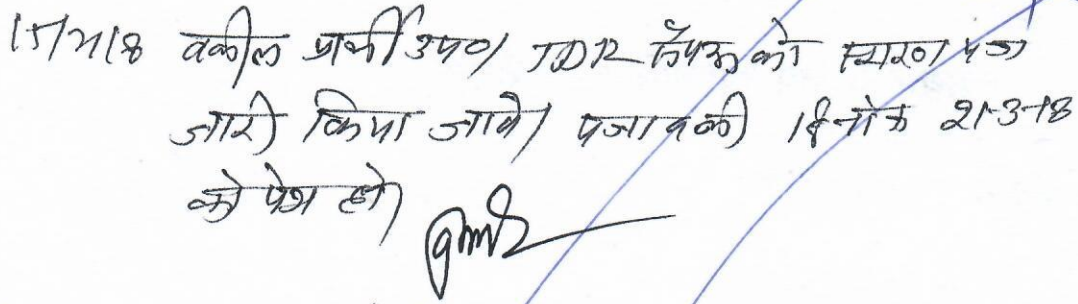 वकील प्रार्थी उप० TDR को स्मरण पत्र
जारी किया जावे। पत्रावली दिनांक 21-3-18
को पेश हो।